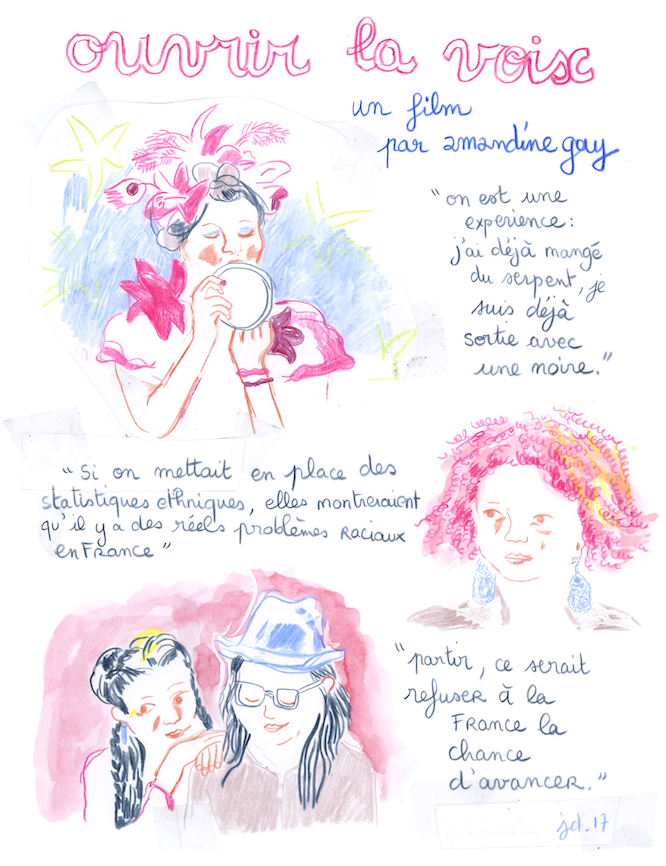 ouvrir la voix
un film
par amandine gay
"on est une
experience:
j'ai déjà mangé
du serpent, je
suis déjà
sortie avec
une noire."
"Si on mettait en place des
statistiques ethniques, elles montreraient
qu'il y a des réels problèmes raciaux
en France"
"partir, ce serait
refuser à la
France la
chance
d'avancer."
jd.17